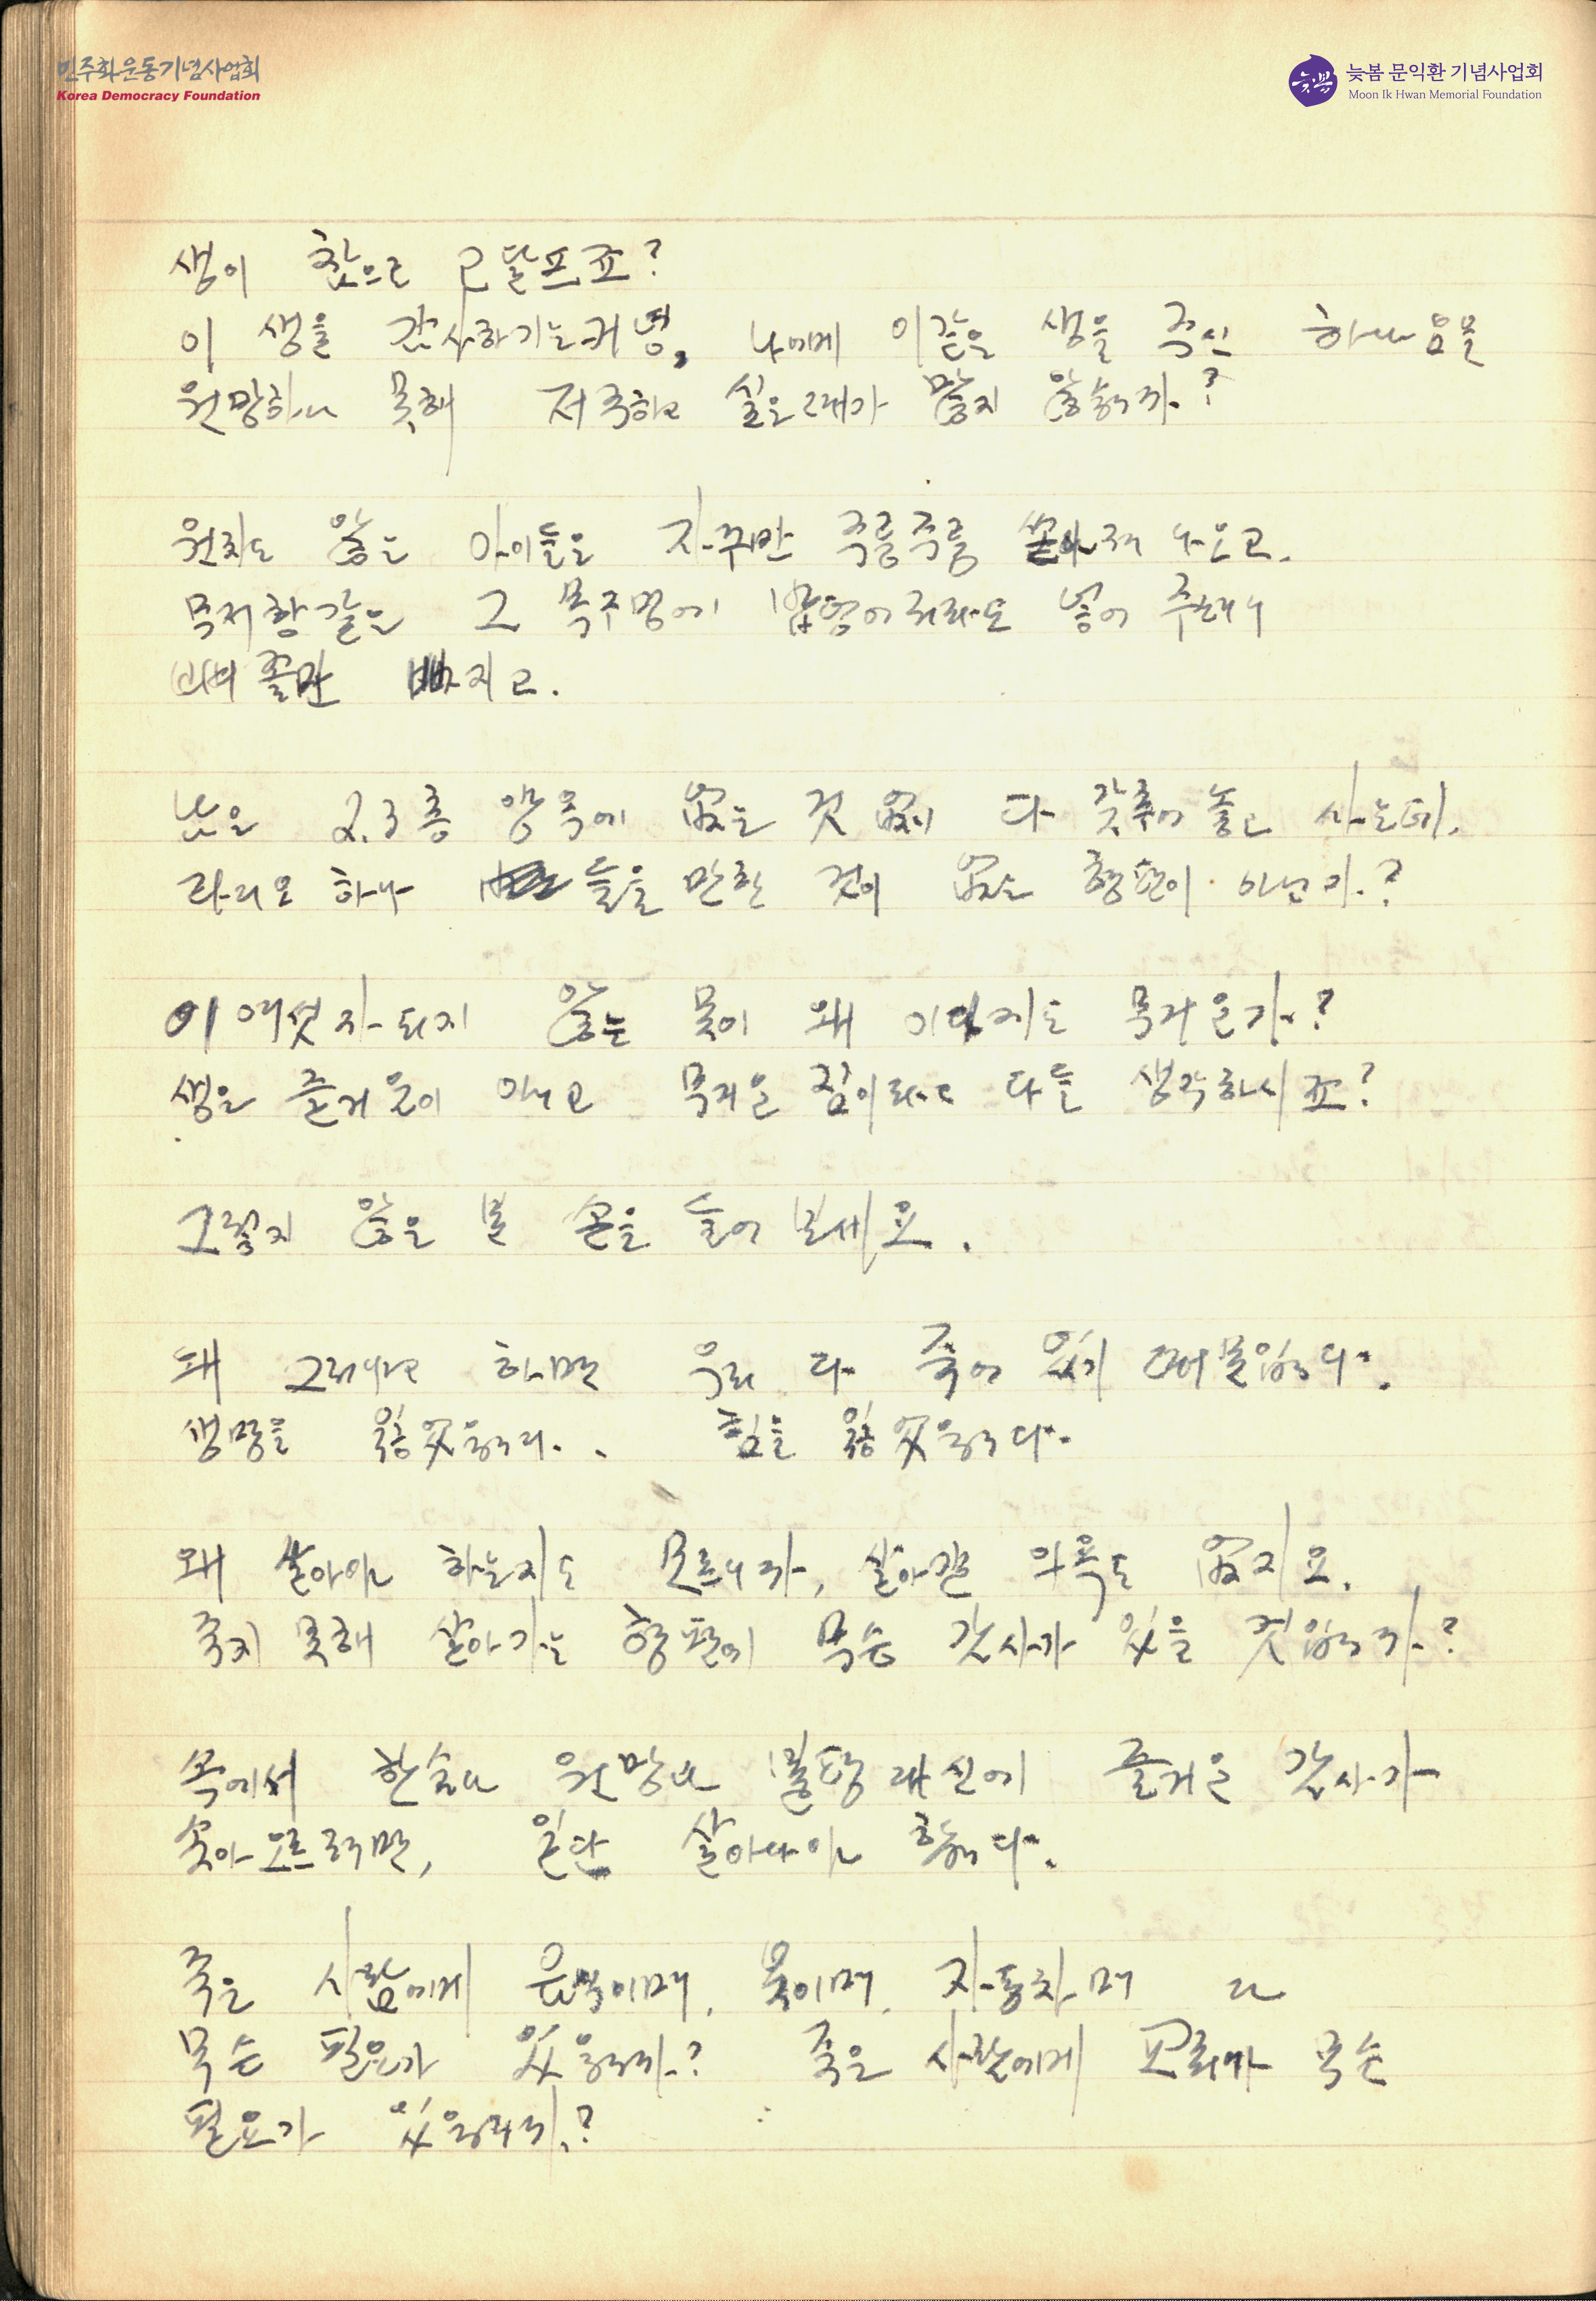 민주화운동기념사업회
Korea Democracy Foundation
늦봄 문익환 기념사업회
Moon Ik Hwan Memorial Foundation
생이 참으로 고달프죠?
이 생을 감사하기는커녕, 나에게 이같은 생을 주신 하나님을
원망하다 못해 저주하고 싶은 때가 많지 않습니까?
원치도 않는 아이들은 자꾸만 주룽주룽 쏟아져 나오고.
먹저항같은 그 목구멍에 밥덩어리라도 넣어 주려니
뼈골만 빠지고.
남은 2.3층 양옥에 없는 것 없이 다 갖추어 놓고 사는데.
라디오 하나 들을 만한 것이 없는 형편이 아닌가?
이 여섯자 되지 않는 몸이 왜 이다지도 무거운가?
생은 즐거움이 아니고 무거운 짐이라고 다들 생각하시죠?
그렇지 않은 분 손을 들어 보세요.
왜 그러냐고 하면 우리 다 죽어 있기 때문입니다.
생명을 잃었읍니다. 힘을 잃었읍니다.
왜 살아야 하는지도 모르니까, 살아갈 의욕도 없지요.
죽지 못해 살아가는 형편에 무슨 감사가 있을 것입니까?
속에서 한숨나 원망나 불평 대신에 즐거운 감사가
솟아 오르려면, 일단 살아나야 합니다.
죽은 사람에게 음식이며, 옷이며, 자동차며 다
무슨 필요가 있읍니까? 죽은 사람에게 교회가 무슨
필요가 있읍니까?